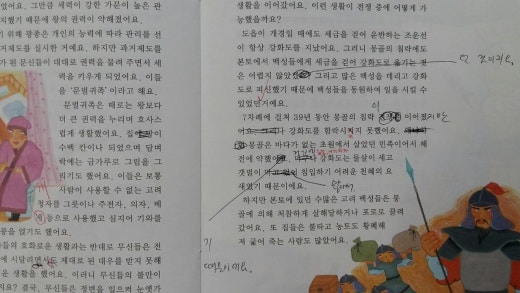 었어요. 그만큼 세력이 강한 가문이 높은 관
지했기 때문에 왕의 권력이 약해졌어요.
기 위해 광종은 개인의 능력에 따라 관리를 선
거제도를 실시한 거예요. 하지만 과거제도를
가 된 문신들이 대대로 권력을 물려 주면서 세
력을 키우게 되었어요. 이들
을 '문벌귀족'이라고 해요.
문벌귀족은 때로는 왕보다
더 큰 권력을 누리며 호사스
럽게 생활했어요.
수백 칸이나 되었으며 담벼
락에는 금가루로 그림을 그
리기도 했어요. 이들은 보통
사람이 사용할 수 없는 고려
청자를 그릇이나 주전자, 의자, 베
등으로 사용했고 심지어 기와를
몽을 얹기도 했어요.
들의 호화로운 생활과는 반대로 무신들은 전
에 시달리면서도 제대로 된 대우를 받지 못해
운 생활을 했어요. 이러니 무신들의 불만이
지요? 결국, 무신들은 정변을 일으켜 눈엣가
생활을 이어갔어요. 이런 생활이 전쟁 중에 어떻게 가
능했을까요?
도읍이 개경일 때에도 세금을 걷어 운반하는 조운선
이 항상 강화도를 지났어요. 그러니 몽골의 침략에도
본토에서 백성들에게 세금을 걷어 강화도로 옮기는 것
은 어렵지 않았 그리고 많은 백성들 데리고 강화
도로 피신했기 때문에 백성들을 동원하여 일을 시킬 수
있었던거예요.
이
7차례에 걸쳐 39년 동안 몽골의 침략 이어졌지만
강화도를 함락시키지 못했어요.
몽골은 바다가 없는 초원에서 살았던 민족이어서 해
전에 약했어요. 강화도는 물살이 세고
갯벌이 침입하기 어려운 천혜의 요
새였기 때문이에요.
하지만 본토에 있던 수많은 고려 백성들은 몽
골에 의해 처참하게 살해당하거나 포로로 끌려
갔어요. 또 집들은 불타고 농토도 황폐해
져 굶어 죽는 사람도 많았어요.
기
때문이에요.